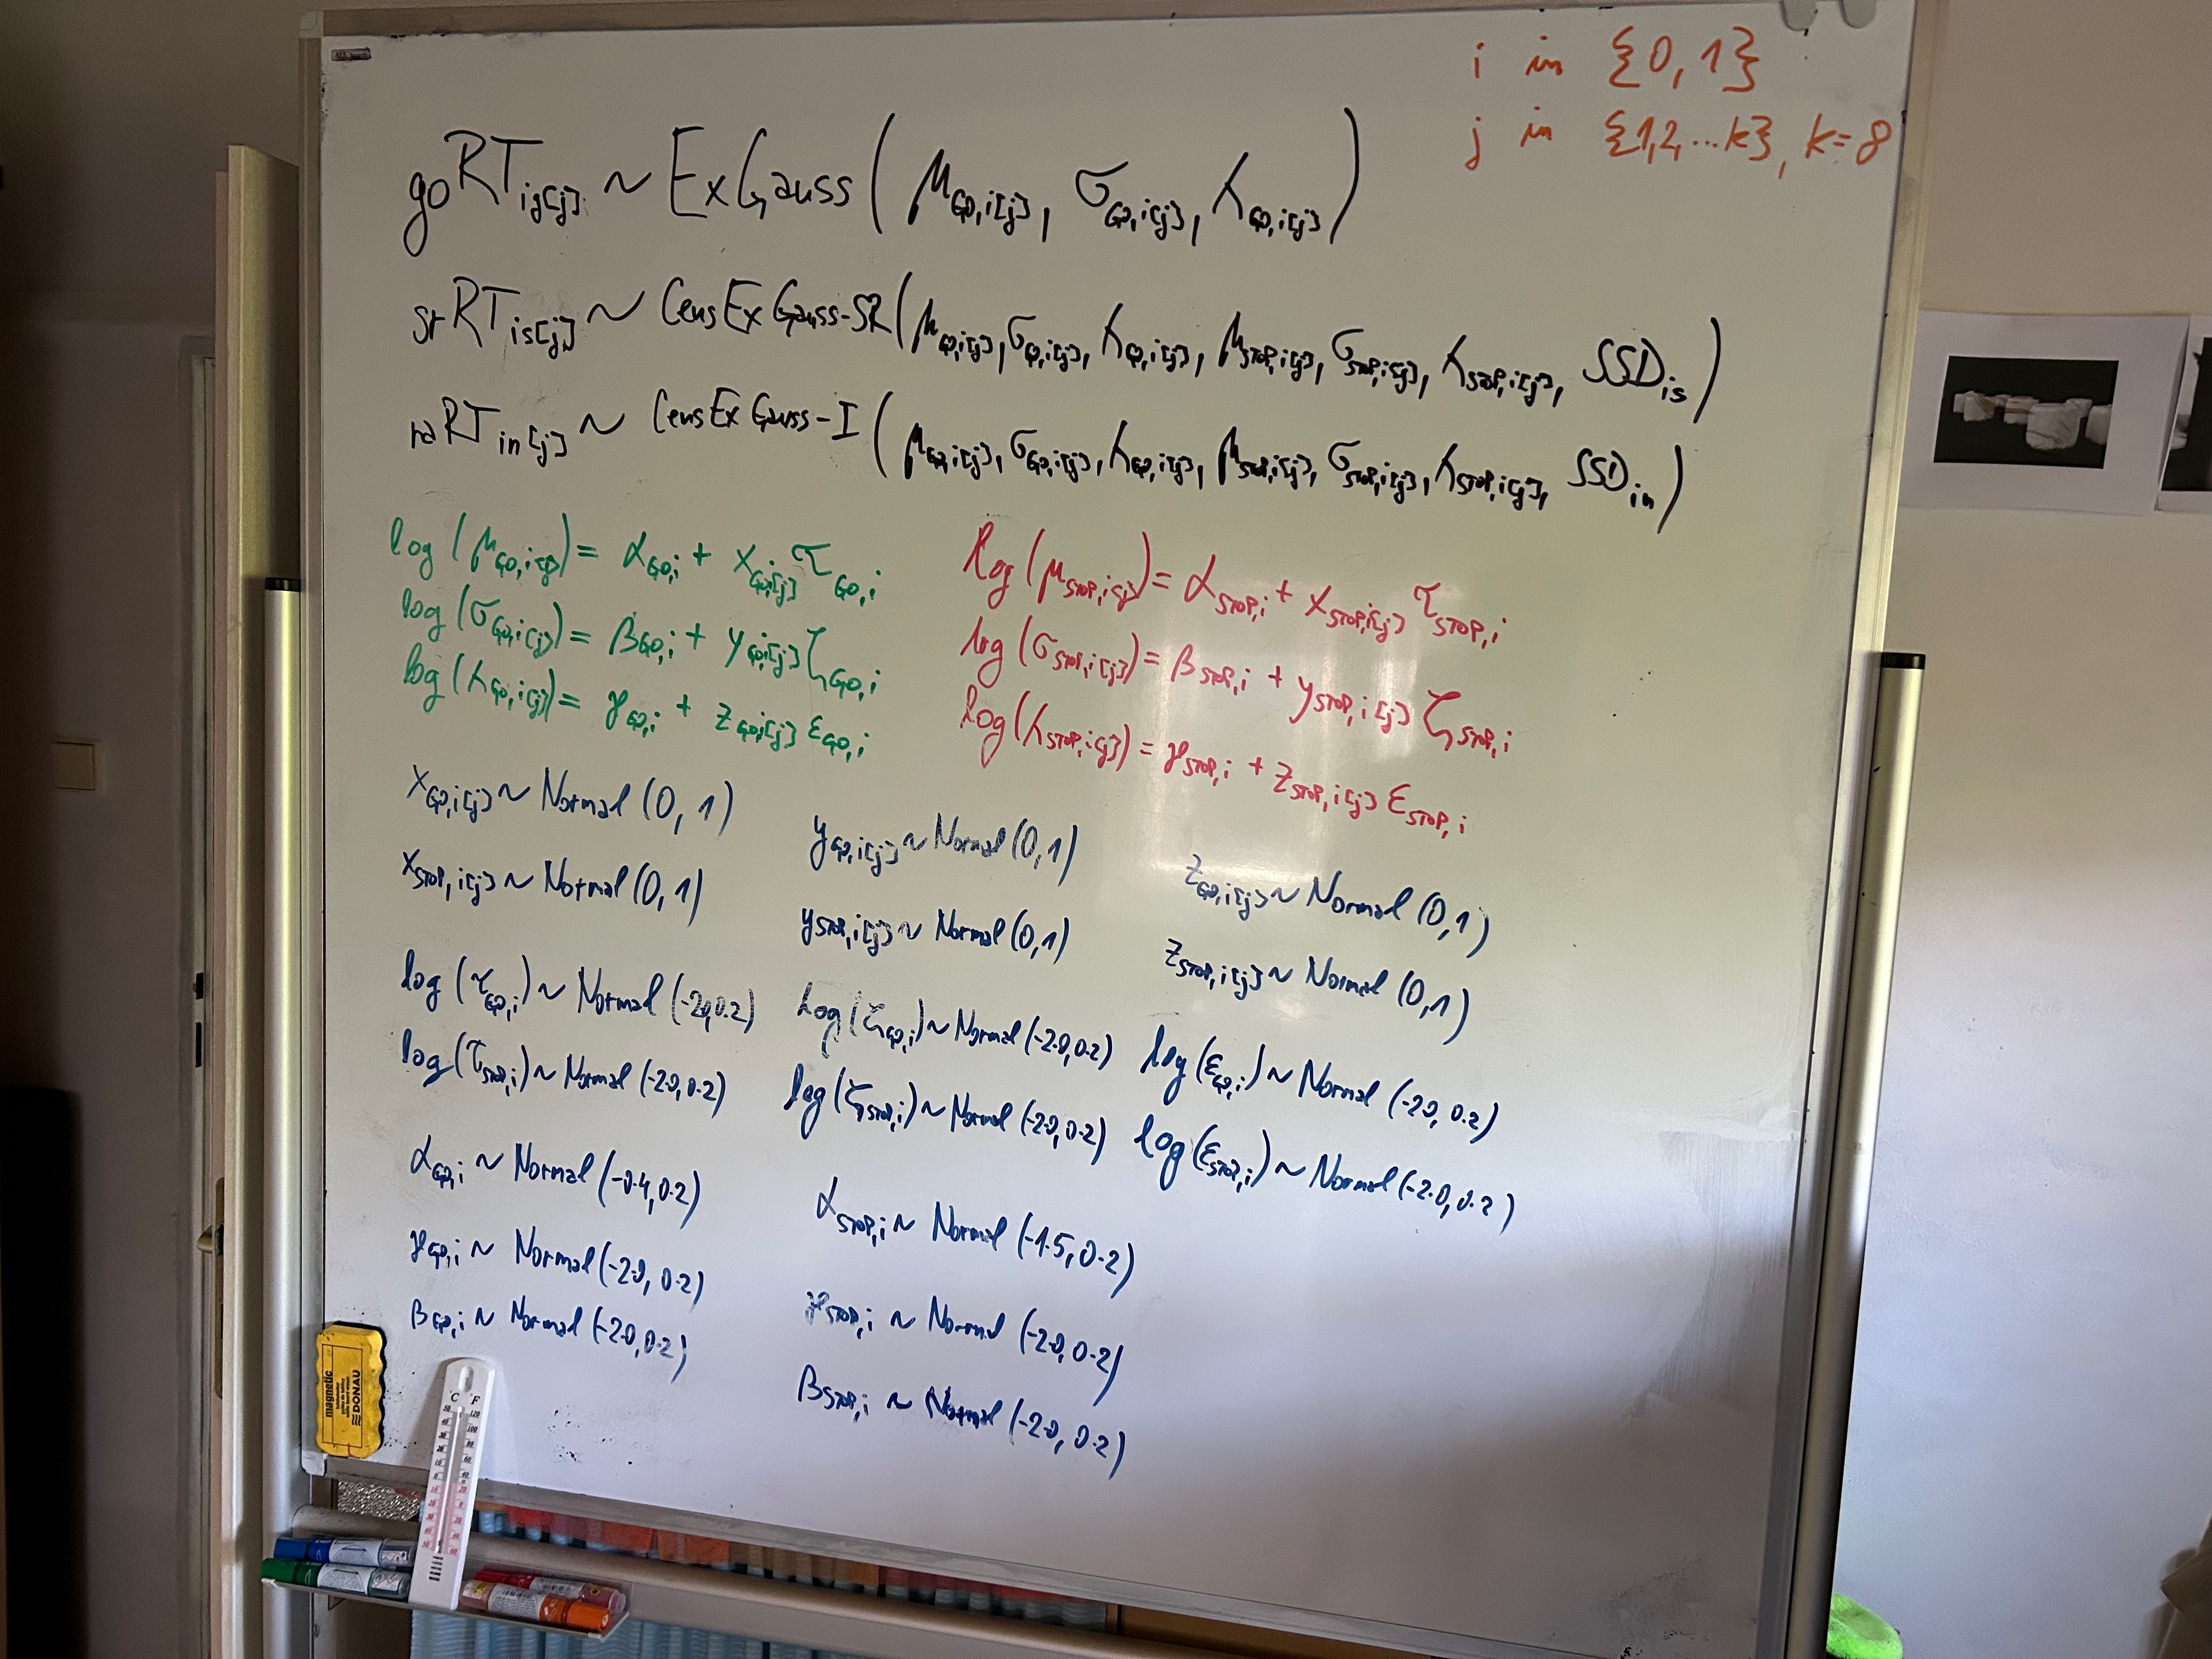 i in {0, 1}
j in {1,2, ...k}, k=8
goRT_ig[j] ~ ExGauss(μ_GO,i[j], σ_GO,i[j], λ_GO,i[j])
srRT_is[j] ~ CensExGauss-SR(μ_GO,i[j], σ_GO,i[j], λ_GO,i[j], μ_STOP,i[j], σ_STOP,i[j], λ_STOP,i[j], SSD_is)
raRT_in[j] ~ CensExGauss-I(μ_GO,i[j], σ_GO,i[j], λ_GO,i[j], μ_STOP,i[j], σ_STOP,i[j], λ_STOP,i[j], SSD_in)
log(μ_GO,i[j]) = α_GO,i + x_GO,i[j] τ_GO,i
log(σ_GO,i[j]) = β_GO,i + y_GO,i[j] ζ_GO,i
log(λ_GO,i[j]) = γ_GO,i + z_GO,i[j] ε_GO,i
log(μ_STOP,i[j]) = α_STOP,i + x_STOP,i[j] τ_STOP,i
log(σ_STOP,i[j]) = β_STOP,i + y_STOP,i[j] ζ_STOP,i
log(λ_STOP,i[j]) = γ_STOP,i + z_STOP,i[j] ε_STOP,i
x_GO,i[j] ~ Normal (0, 1)
y_GO,i[j] ~ Normal (0, 1)
z_GO,i[j] ~ Normal (0, 1)
x_STOP,i[j] ~ Normal (0, 1)
y_STOP,i[j] ~ Normal (0, 1)
z_STOP,i[j] ~ Normal (0, 1)
log(τ_GO,i) ~ Normal (-2.0, 0.2)
log(ζ_GO,i) ~ Normal (-2.0, 0.2)
log(ε_GO,i) ~ Normal (-2.0, 0.2)
log(τ_STOP,i) ~ Normal (-2.0, 0.2)
log(ζ_STOP,i) ~ Normal (-2.0, 0.2)
log(ε_STOP,i) ~ Normal (-2.0, 0.2)
α_GO,i ~ Normal (-0.4, 0.2)
α_STOP,i ~ Normal (-1.5, 0.2)
γ_GO,i ~ Normal (-2.0, 0.2)
γ_STOP,i ~ Normal (-2.0, 0.2)
β_GO,i ~ Normal (-2.0, 0.2)
β_STOP,i ~ Normal (-2.0, 0.2)
magnetic
DONAU
C F